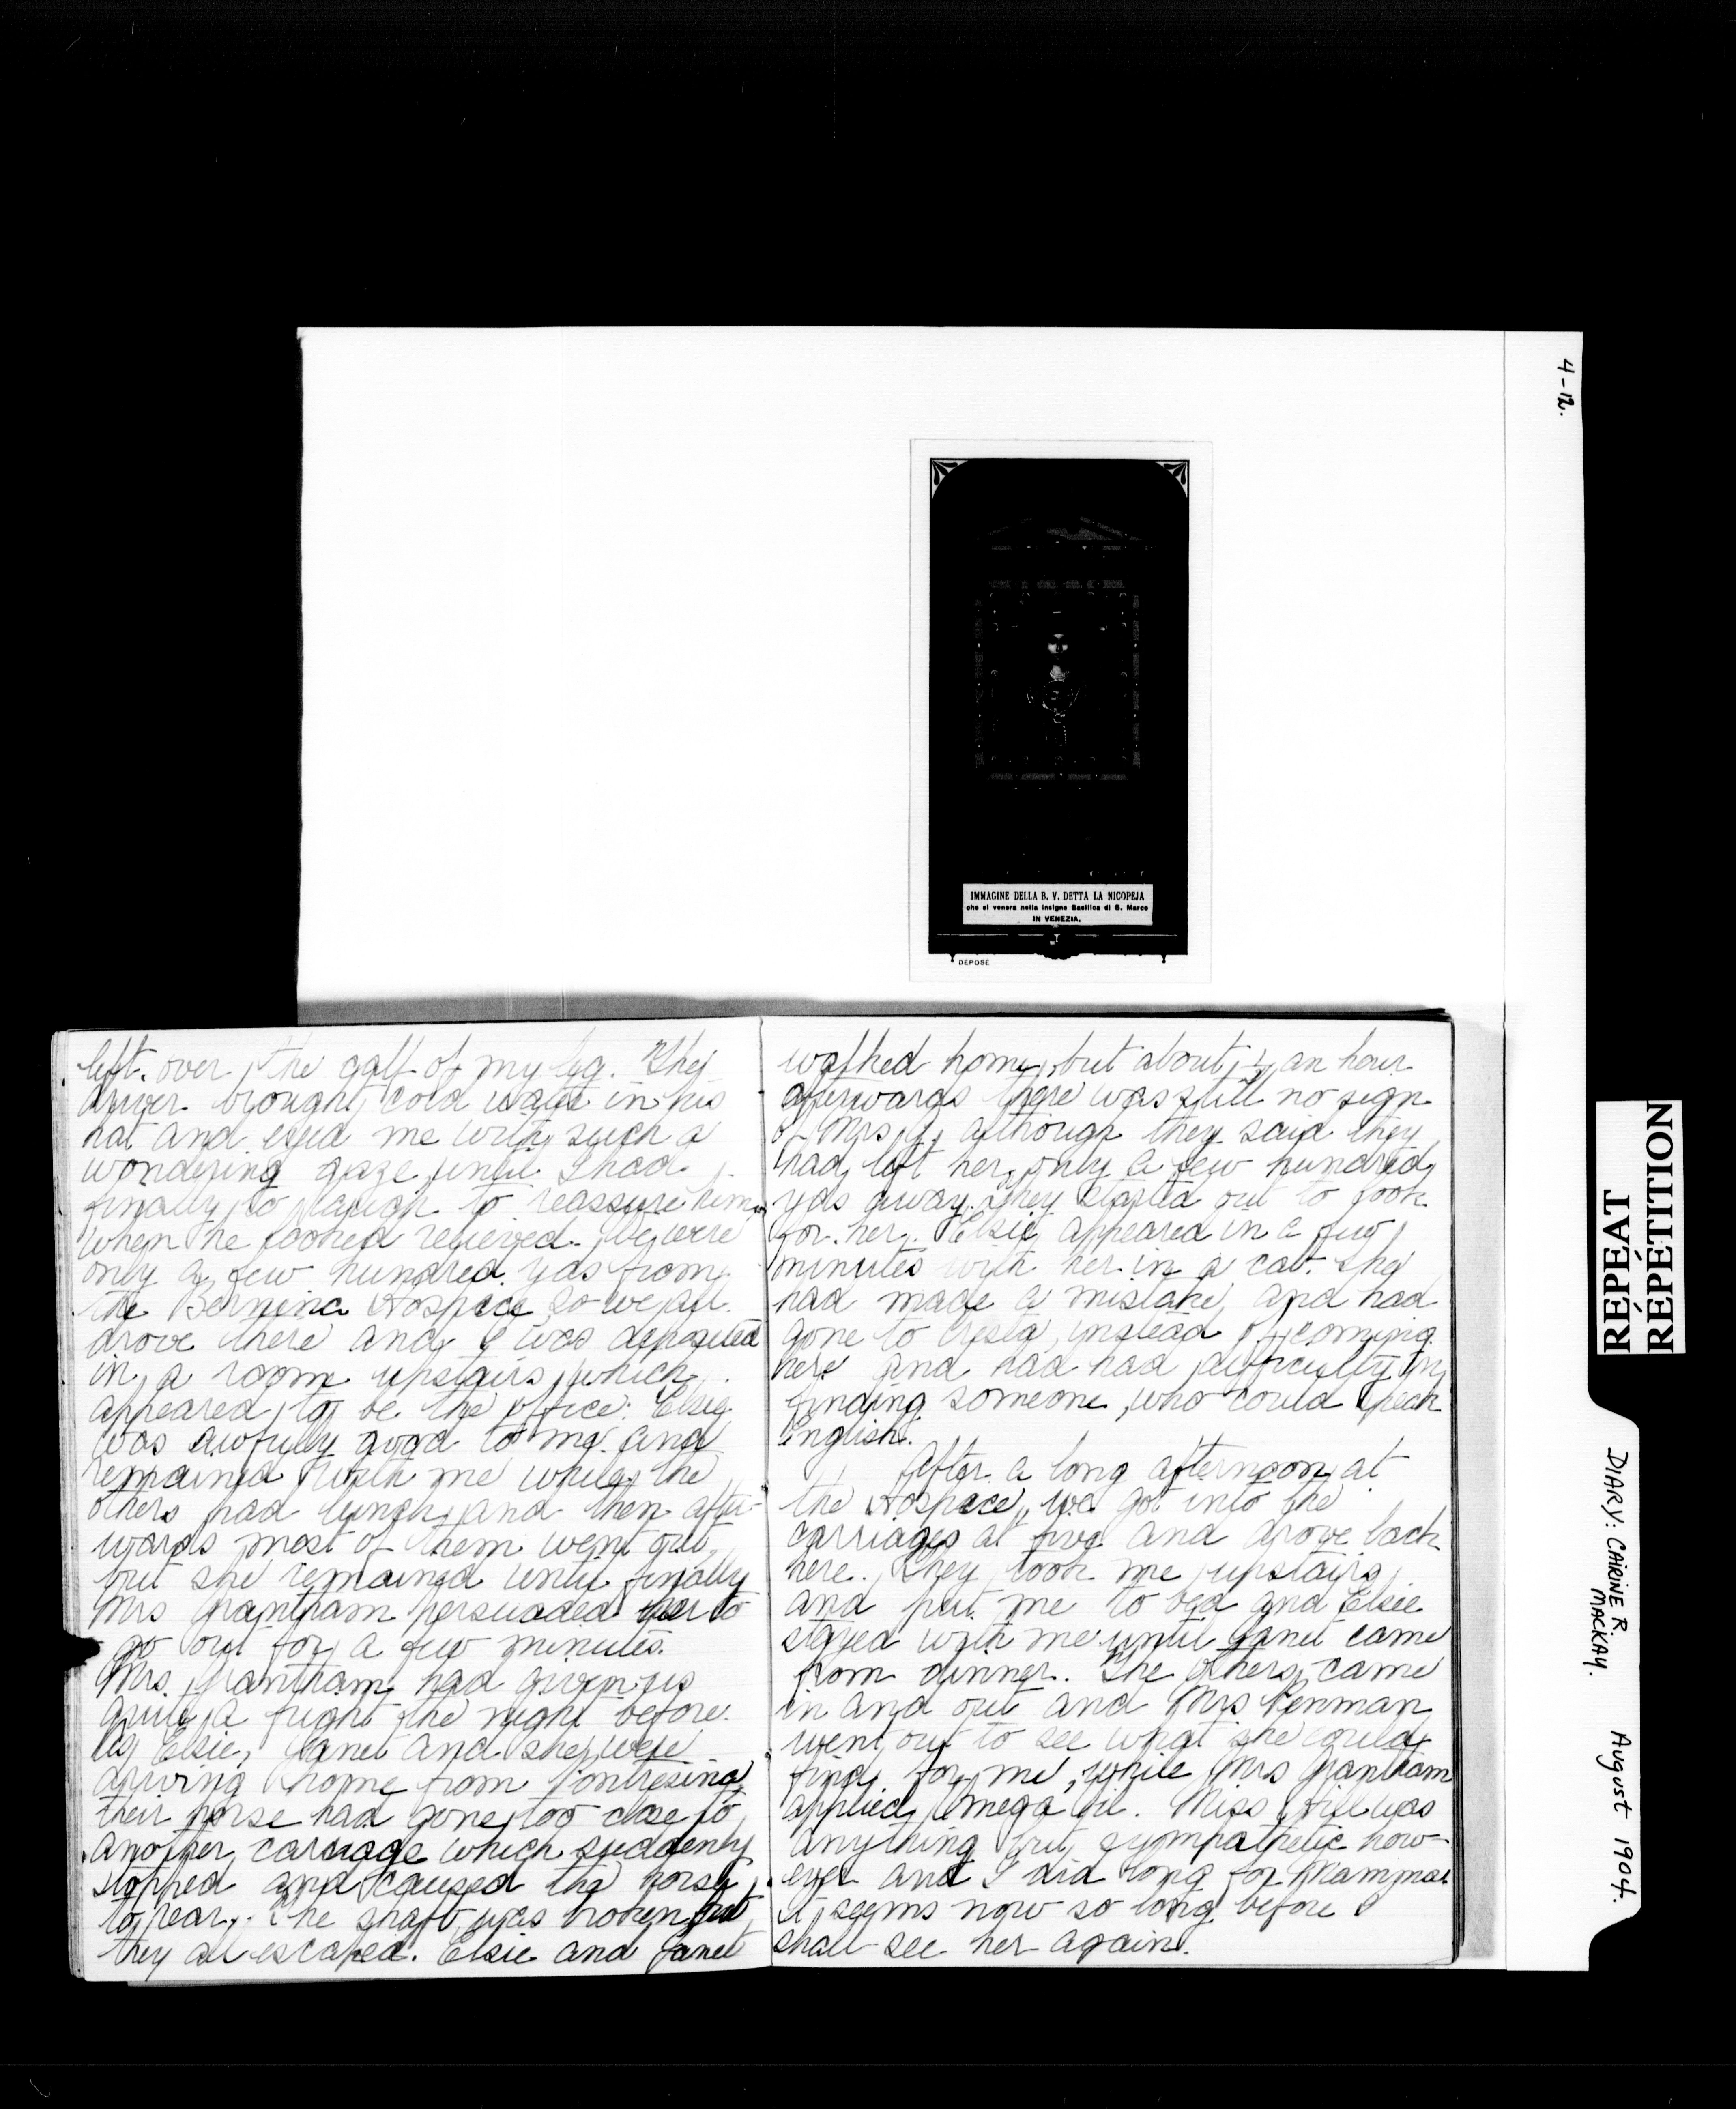 4-12.
IMMAGINE DELLA B. V. DETTA LA NICOPEJA
che si venera nella insigne Basilica di S. Marco
IN VENEZIA.
DEPOSE
left over the calf of my leg. The
driver brought cold water in his
hat and eyed me with such a
wondering gaze until I had
finally to laugh to reassure him,
when he looked relieved. We were
only a few hundred yds from
the Bernina Hospice so we all
drove there and I was deposited
in a room upstairs, which
appeared to be the office. Elsie
was awfully good to me and
remained with me while the
others had lunch, and then after-
wards most of them went out,
but she remained until finally
Mrs Grantham persuaded her to
go out for a few minutes.
Mrs. Grantham had given us
quite a fright the night before.
As Elsie, Janet and she were
driving home from Pontresina,
their horse had gone too close to
another carriage which suddenly
stopped and caused the horse
to rear. The shaft was broken but
they all escaped. Elsie and Janet
walked home, but about ½ an hour
afterwards there was still no sign
of Mrs G. although they said they
had left her only a few hundred
yds away. They started out to look
for her. Elsie appeared in a few
minutes with her in a cab. She
had made a mistake, and had
gone to Cresta, instead of coming
here and had had difficulty in
finding someone, who could speak
English.
After a long afternoon at
the Hospice, we got into the
carriages at five and drove back
here. They took me upstairs
and put me to bed and Elsie
stayed with me until Janet came
from dinner. The others came
in and out and Mrs Penman
went out to see what she could
find for me, while Mrs Grantham
applied Omega oil. Miss Hill was
anything but sympathetic how-
ever and I did long for Mamma
it seems now so long before I
shall see her again.
REPÉAT
RÉPÉTITION
DIARY: CAIRINE R.
MACKAY.
August 1904.